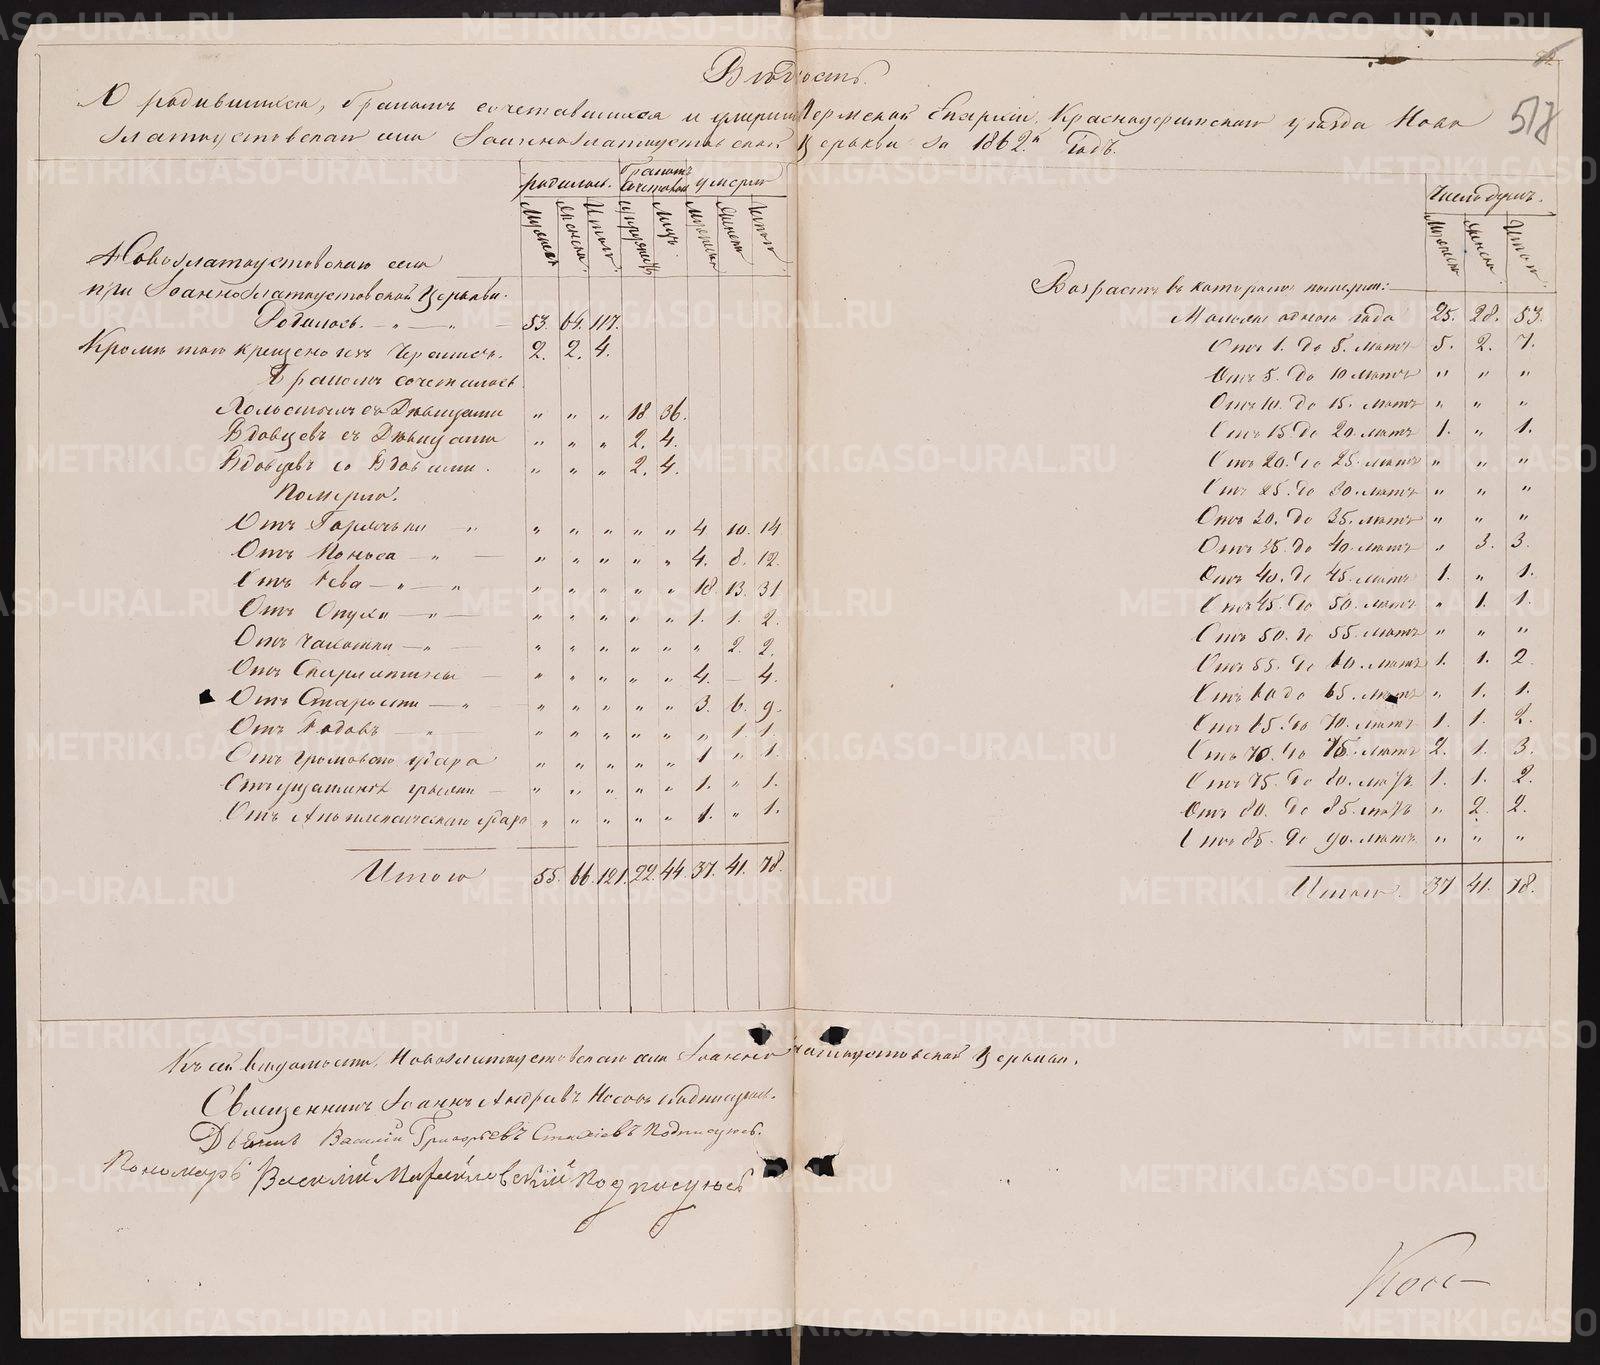 Вѣдомость
О родившихся, бракомъ сочетавшихся и умершихъ Пермской Епархіи, Красноуфимскаго уѣзда Ново
златоустовскаго села Іоанно златоустовской Церкви за 1862й Годъ.
518
родилось. бракомъ сочеталось умерло
Мужеска Женска Итого супружествъ Лицъ Мужеска Женска Итого
Новозлатоустовскаго села
при Іоанно Златоустовской Церкви.
Родилось. 53. 64. 117.
Кромѣ того крещено изъ Черемисъ. 2. 2. 4.
Бракомъ сочеталось
Холостыхъ съ Дѣвицами „ „ „ 18 36.
Вдовцевъ съ Дѣвицами „ „ „ 2. 4.
Вдовцевъ со Вдовами. „ „ „ 2. 4.
Померло.
Отъ Горячьки „ „ „ „ „ „ 4 10. 14
Отъ Поноса „ „ „ „ „ „ 4. 8. 12.
Отъ Рева „ „ „ „ „ „ „ 18 13. 31
Отъ Опухи „ „ „ „ „ „ 1. 1. 2.
Отъ Чахотки „ „ „ „ „ „ „ 2. 2.
Отъ Скарлатины „ „ „ „ „ 4. — 4.
Отъ Старости „ „ „ „ „ „ 3. 6. 9.
Отъ Родовъ „ „ „ „ „ „ „ 1. 1.
Отъ громоваго удара „ „ „ „ „ 1 „ 1.
Отъ ущемленія грыжи „ „ „ „ „ 1. „ 1.
Отъ Апоплексическаго удара „ „ „ „ „ 1. „ 1.
Итого 55. 66. 121. 22. 44. 37. 41. 78.
Число душъ.
Мужеска Женска Итого
Возрастъ въ которомъ померли:
Моложе однаго года 25. 28. 53.
Отъ 1. до 5. лѣтъ 5. 2. 7.
Отъ 5. до 10 лѣтъ „ „ „
Отъ 10. до 15. лѣтъ „ „ „
Отъ 15 до 20. лѣтъ 1. „ 1.
Отъ 20. до 25. лѣтъ „ „ „
Отъ 25. до 30. лѣтъ „ „ „
Отъ 30. до 35. лѣтъ „ „ „
Отъ 35. до 40. лѣтъ „ 3. 3.
Отъ 40. до 45. лѣтъ 1. „ 1.
Отъ 45. до 50. лѣтъ „ 1. 1.
Отъ 50. до 55. лѣтъ „ „ „
Отъ 55. до 60. лѣтъ 1. 1. 2
Отъ 60 до 65. лѣтъ „ 1. 1.
Отъ 65 до 70. лѣтъ 1. 1. 2.
Отъ 70. до 75. лѣтъ 2. 1. 3.
Отъ 75. до 80. лѣтъ 1. 1. 2.
Отъ 80. до 85. лѣтъ „ 2. 2.
Отъ 85. до 90. лѣтъ „ „ „
Итого. 37 41. 78.
Къ сей вѣдомости, Новозлатоустовскаго села Іоанно златоустовской Церкви.
Священникъ Іоаннъ Андреевъ Носовъ подписуюсь.
Дьяконъ Василій Григорьевъ Стахіевъ Подписуюсь.
Пономарь Василій Михайловскій Подписуюсь
METRIKI.GASO-URAL.RU